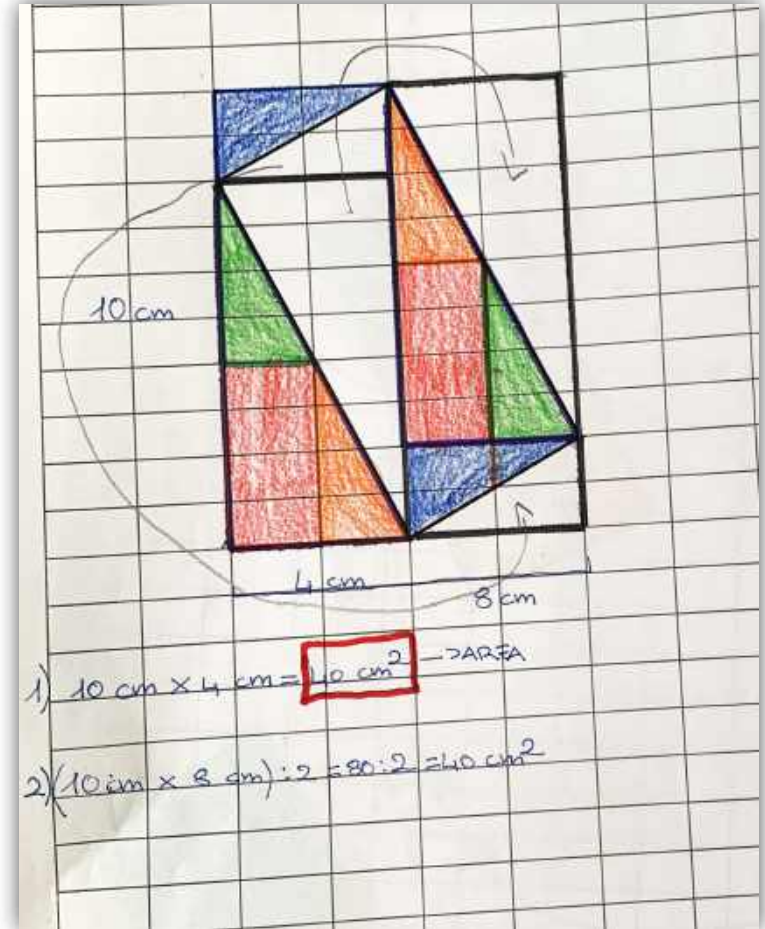 10 cm
4 cm
8 cm
1) 10 cm × 4 cm = 40 cm² → AREA
2) (10 cm × 8 cm) : 2 = 80 : 2 = 40 cm²